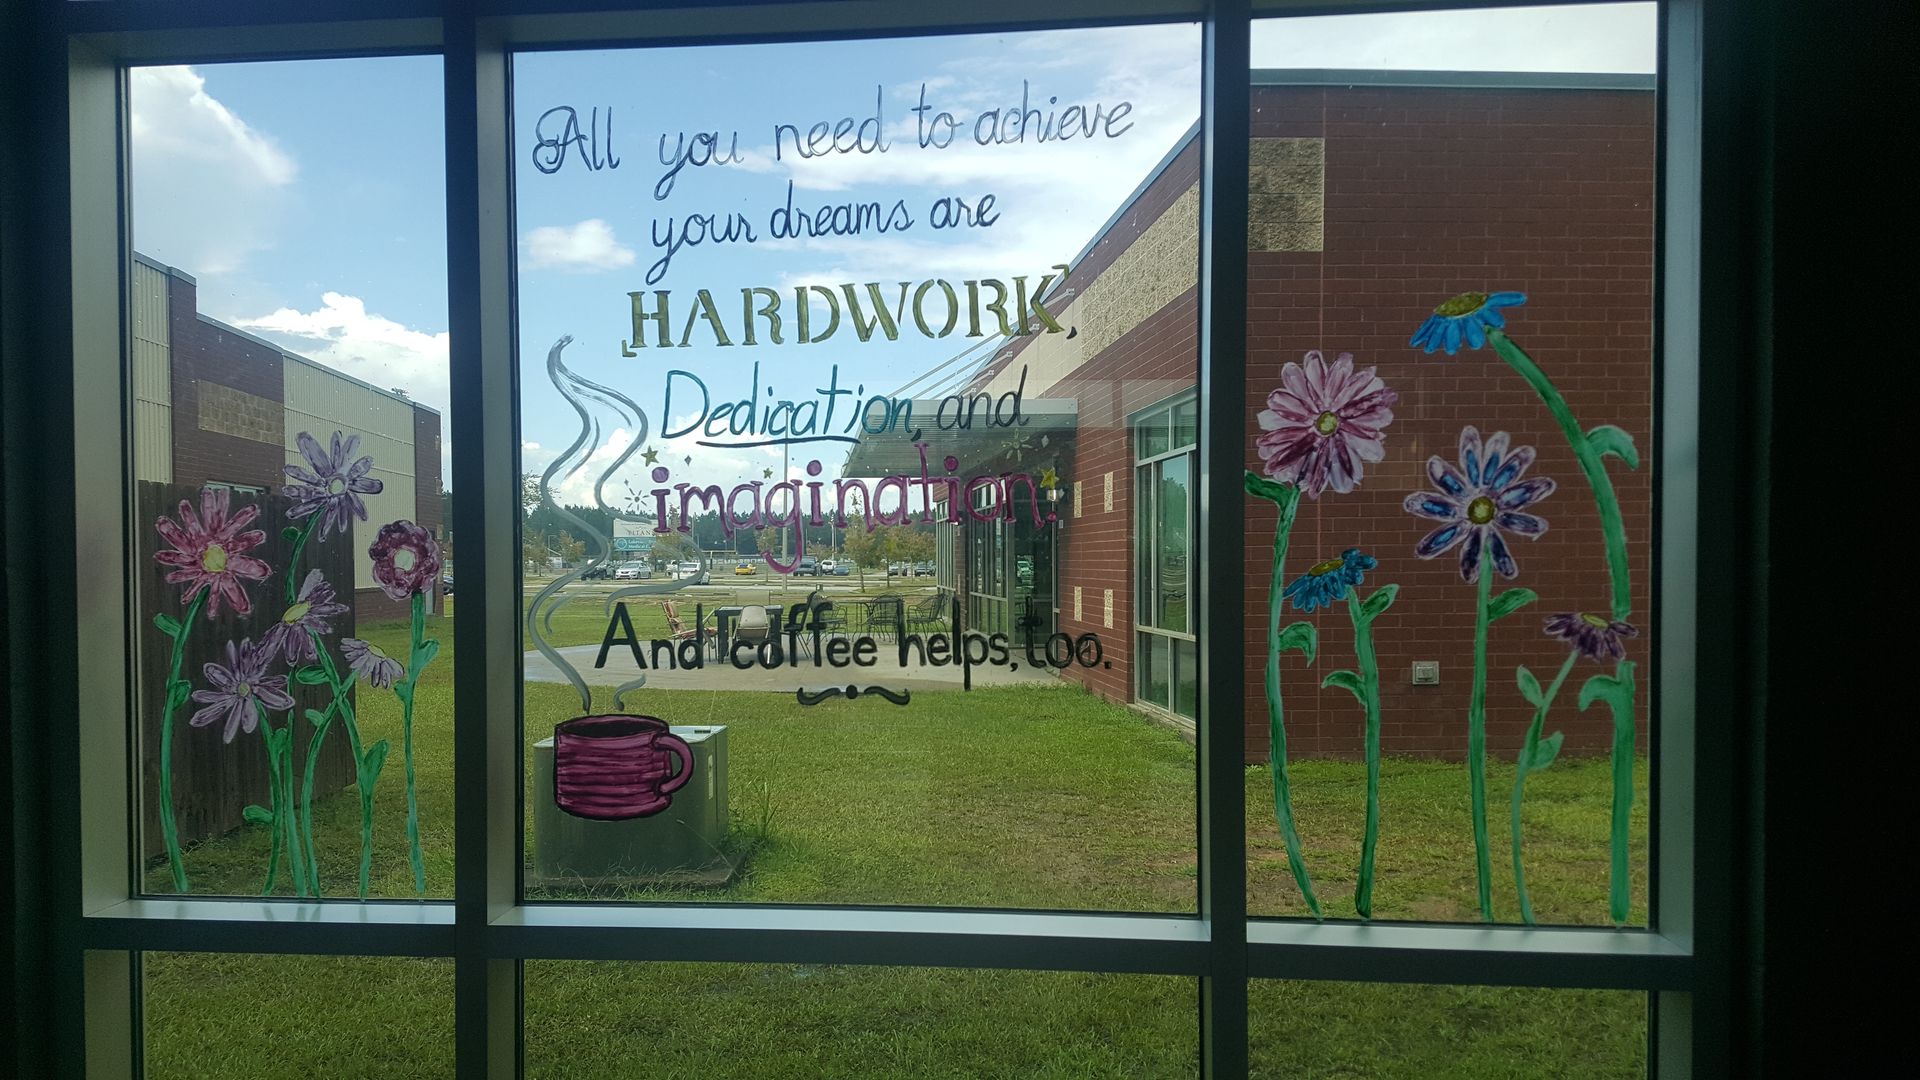 All you need to achieve
your dreams are
HARDWORK,
Dedication, and
imagination.
And coffee helps, too.